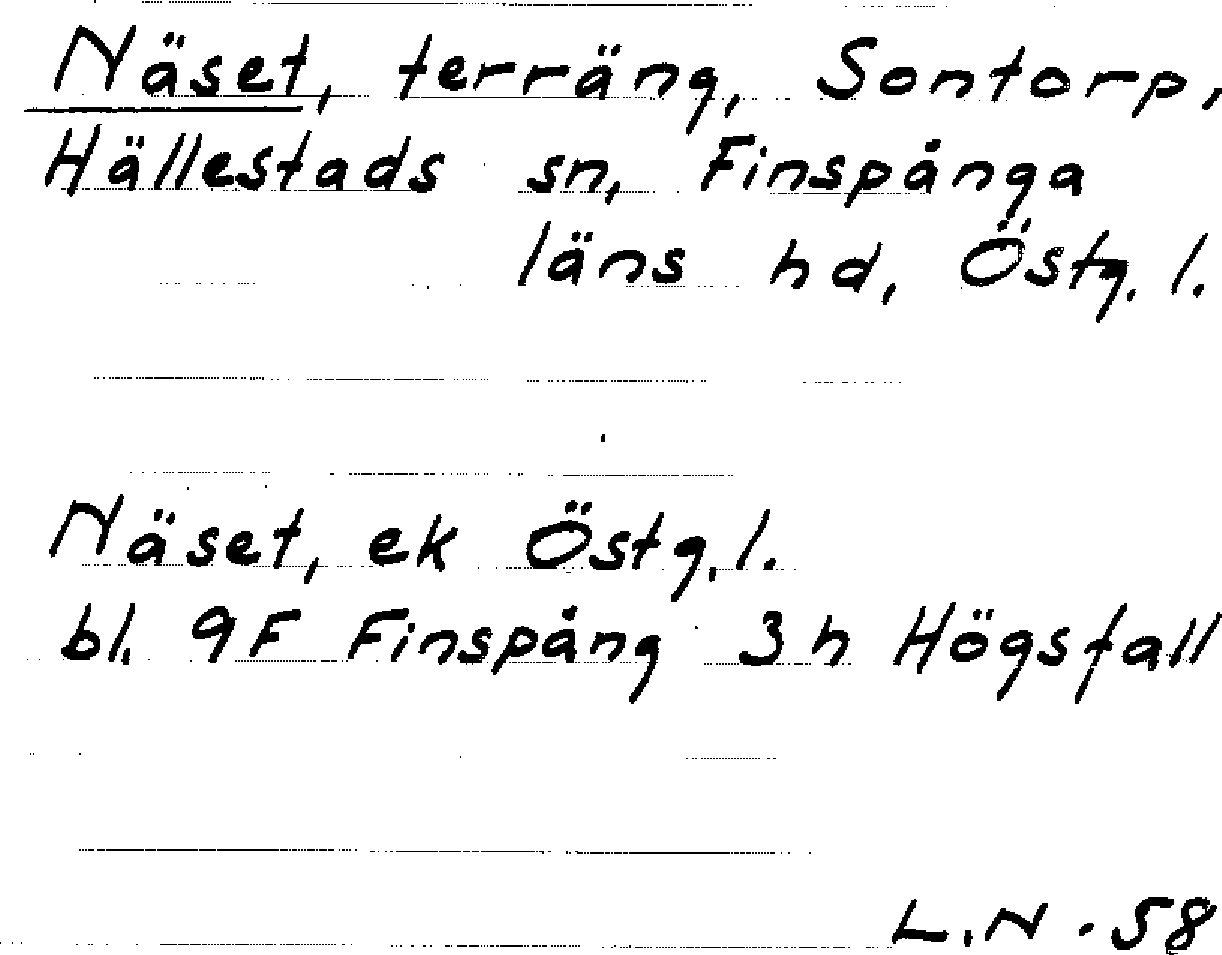 Näset, terräng, Sontorp,
Hällestads sn, Finspånga
läns hd, Östg. l.
Näset, ek Östg. l.
bl. 9F Finspång 3h Högsfall
L.N. -58